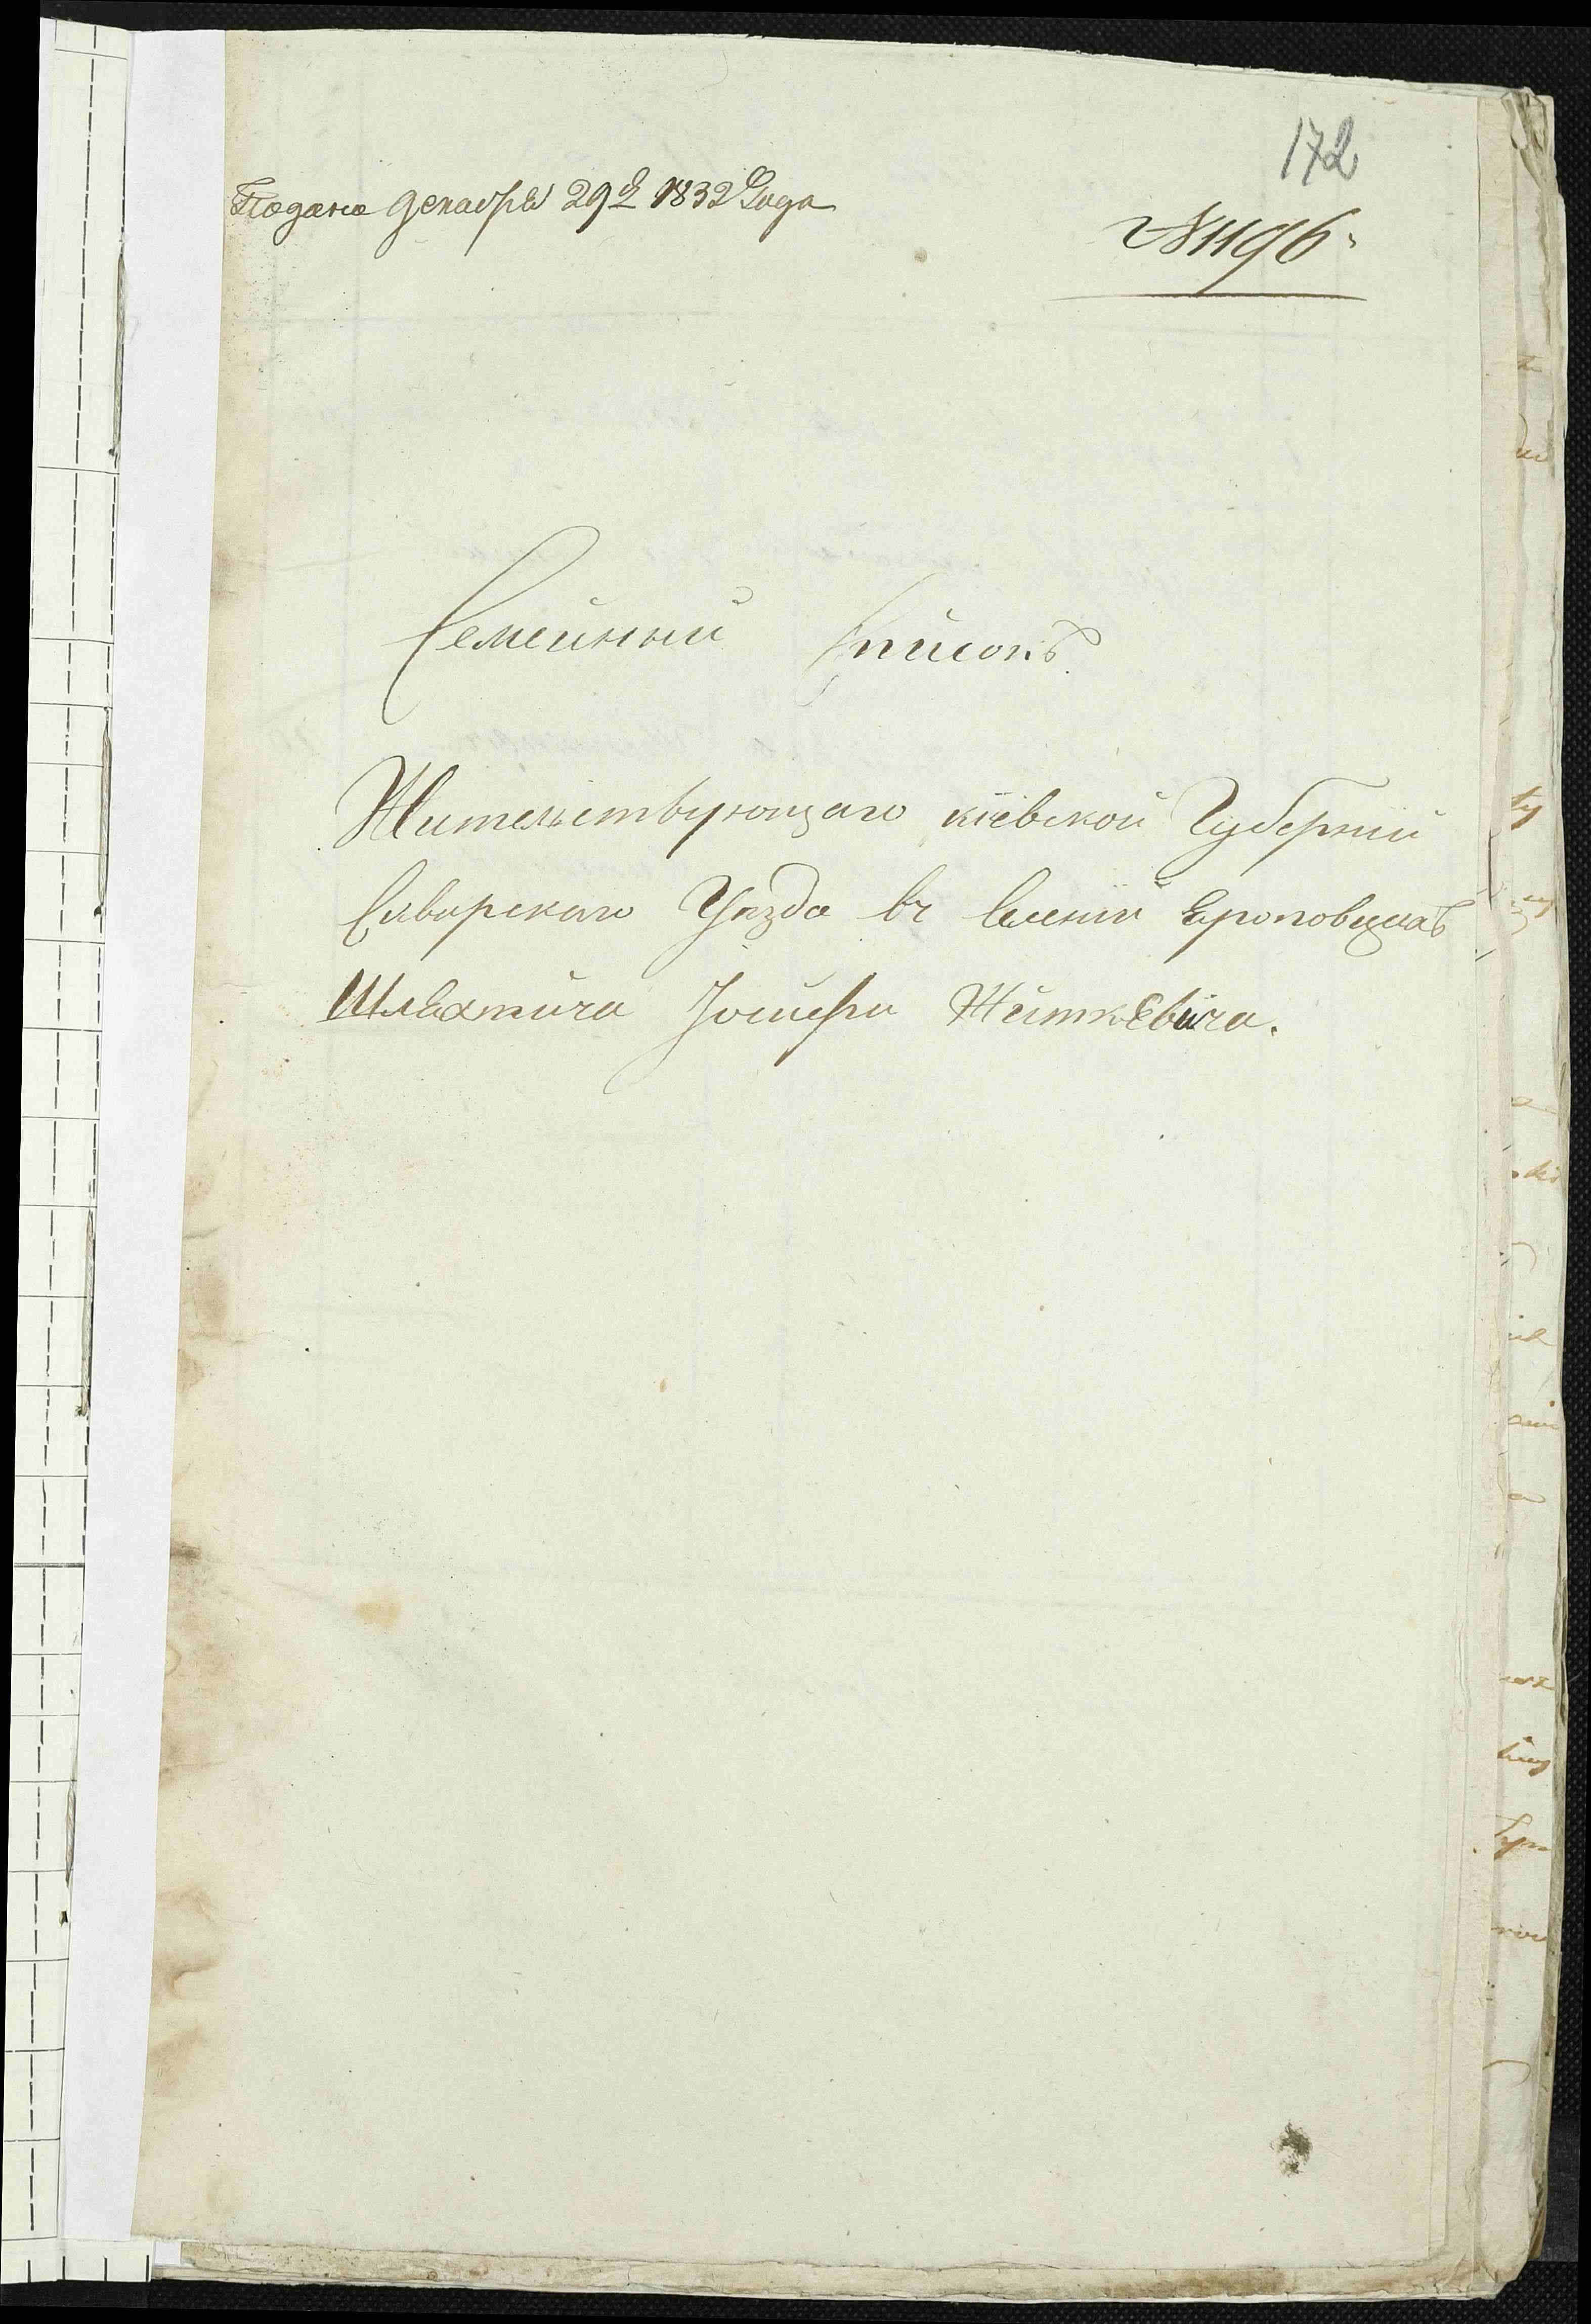 172
Подано декабря 29го 1832 Года
№ 1196.
Семейный Список.
Жительствующаго кіевской Губерніи
Сквирскаго Уѣзда въ Селеніи Ероповцахъ
Шляхтича Іосифа Житкевича.